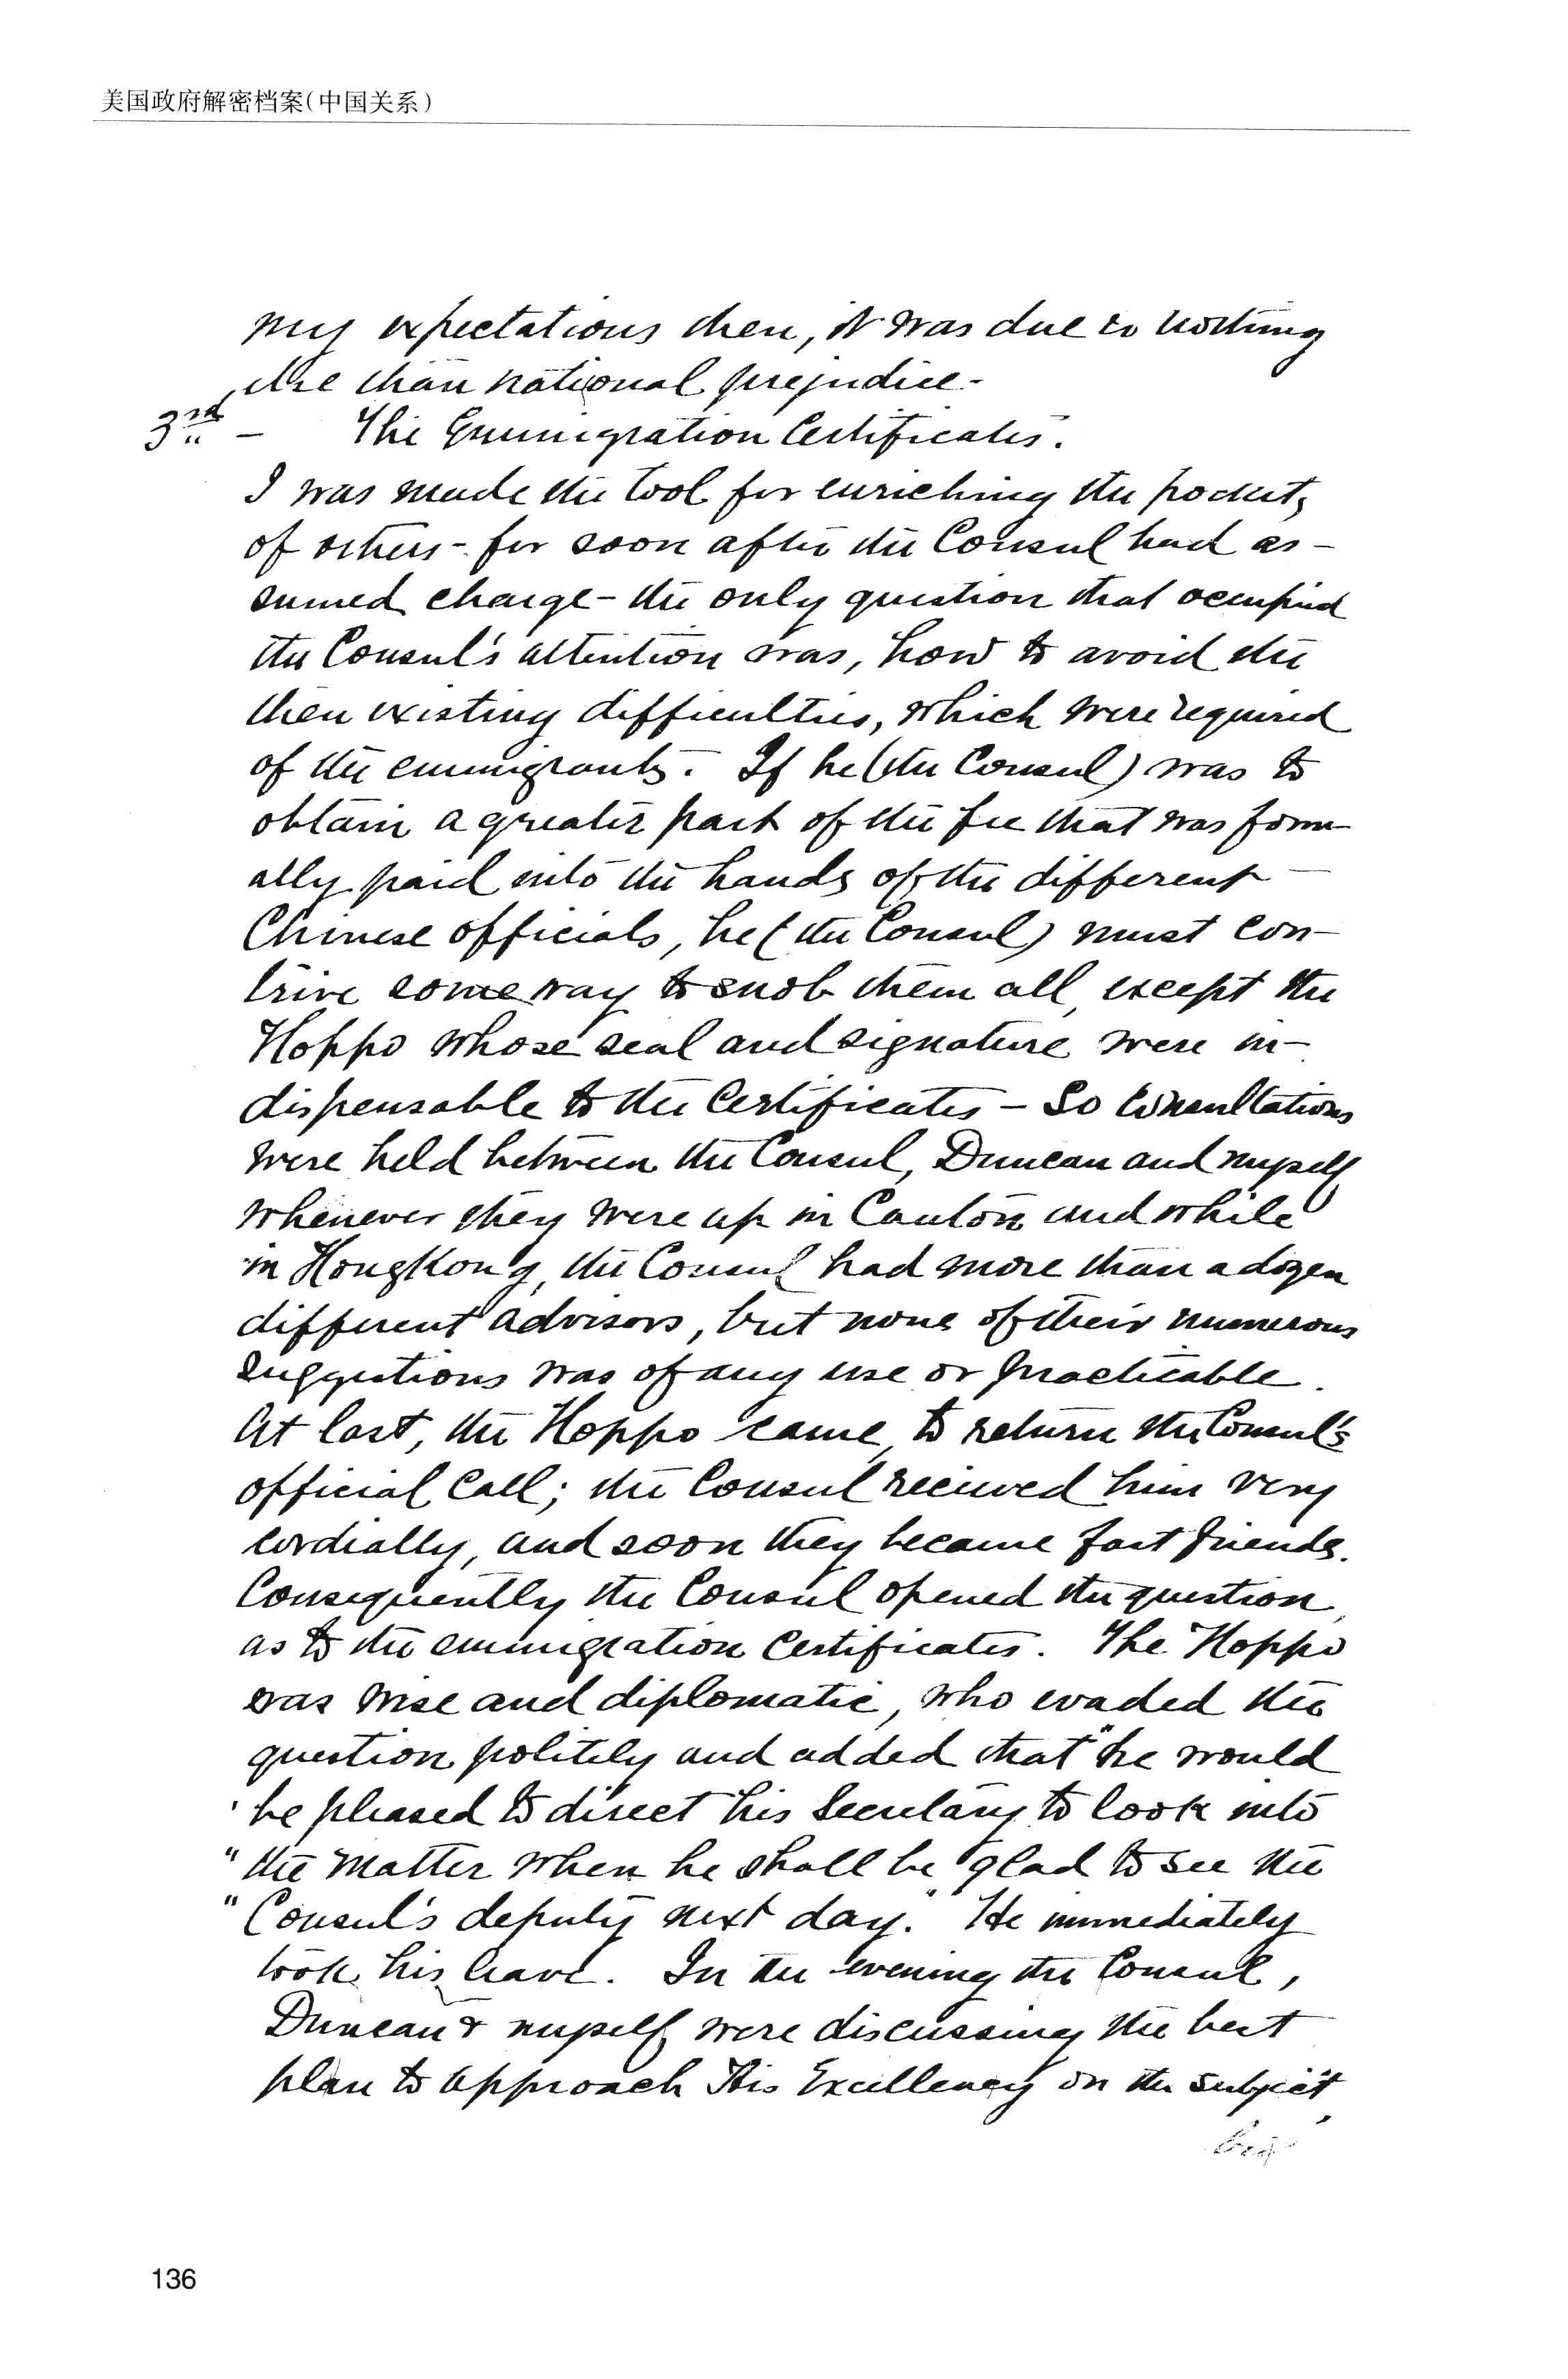 美国政府解密档案(中国关系)
my expectations then, it was due to nothing
else than national prejudice-
3rd - The Emmigration Certificates.
I was made the tool for enriching the pockets
of others - for soon after the Consul had as-
sumed charge - the only question that occupied
the Consul's attention was, how to avoid the
then existing difficulties, which were required
of the emmigrants. If he (the Consul) was to
obtain a greater part of the fee that was form-
ally paid into the hands of the different
Chinese officials, he (the Consul) must con-
trive some way to snob them all, except the
Hoppo whose seal and signature were in-
dispensable to the Certificates - So consultations
were held between the Consul, Duncan and myself
whenever they were up in Canton and while
in HongKong, the Consul had more than a dozen
different advisors, but none of their numerous
suggestions was of any use or practicable.
At last, the Hoppo came to return the Consul's
official Call; the Consul received him very
cordially, and soon they became fast friends.
Consequently the Consul opened the question,
as to the emmigration Certificates. The Hoppo
was wise and diplomatic, who evaded the
question politely and added that "he would
' be pleased to direct his Secretary to look into
" the matter when he shall be glad to see the
" Consul's deputy next day." He immediately
took his leave. In the evening the Consul,
Duncan & myself were discussing the best
plan to approach His Excellency on the subject,
136